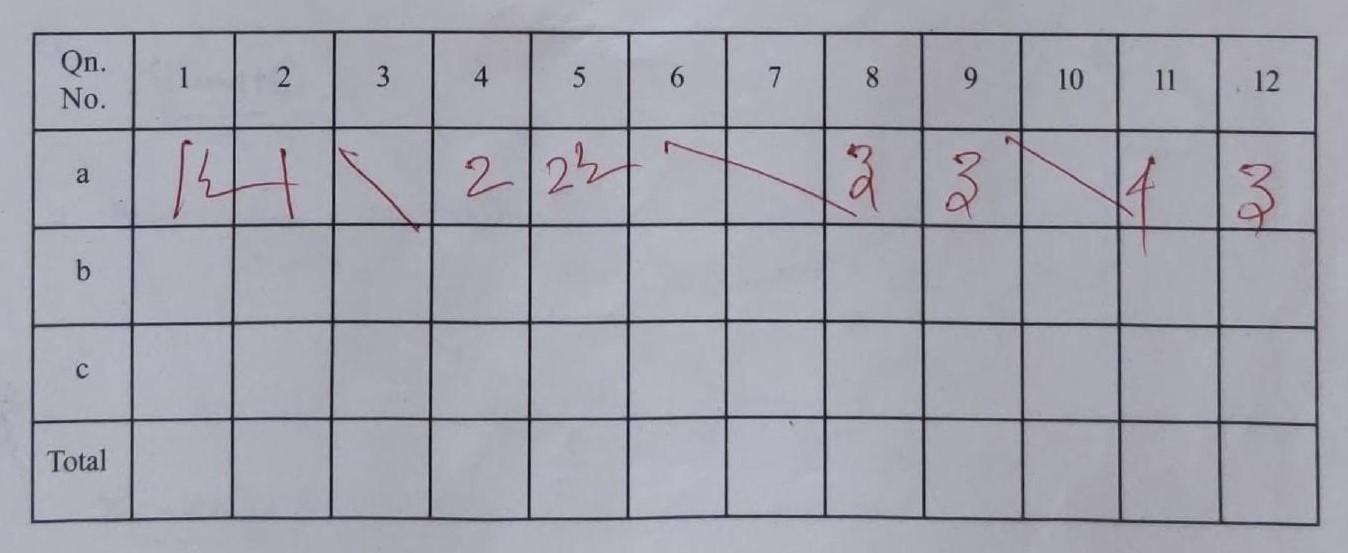 Qn. No. 1 2 3 4 5 6 7 8 9 10 11 12
a 1½ 1 2 2½ 3 3 4 3
b
c
Total